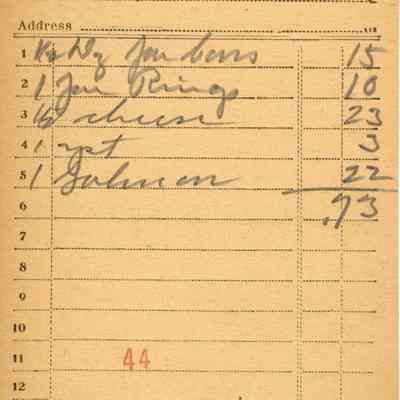 Address
1 Dz Jar covers 15
2 1 Jar Rings 10
3 cheese 23
4 1 yst 3
5 1 Salmon 22
6 .73
7
8
9
10
11 44
12